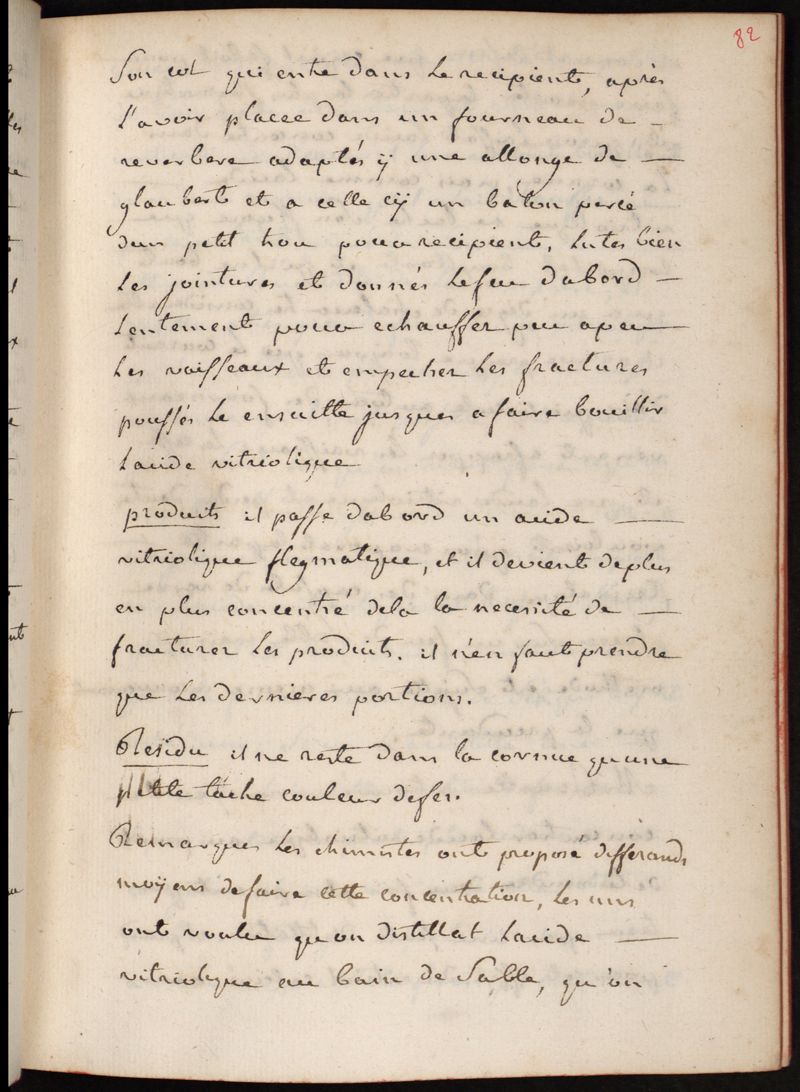 82
Son col qui entre dans le recipient, après
l'avoir placee dans un fourneau de –
reverbere adaptés ÿ une allonge de —
glaubert et a celle cÿ un balon percé
dun petit trou pour recipient, lutes bien
les jointures et donnés le feu dabord –
lentement pour echauffer peu apeu —
les vaisseaux et empecher les fractures
poussés le ensuitte jusques a faire bouillir
lacide vitriolique
produits il passe dabord un acide —
vitriolique flegmatique, et il devient deplus
en plus concentré dela la necessité de —
fracturer les produits. il n'en faut prendre
que les dernieres portions.
Residu il ne reste dans la cornue qu'une
petite tâche couleur defer.
Remarques les chimistes ont proposé differands
moÿens defaire cette concentration, les uns
ont voulu qu'on distillat lacide —
vitriolique au bain de Sable, qu'on